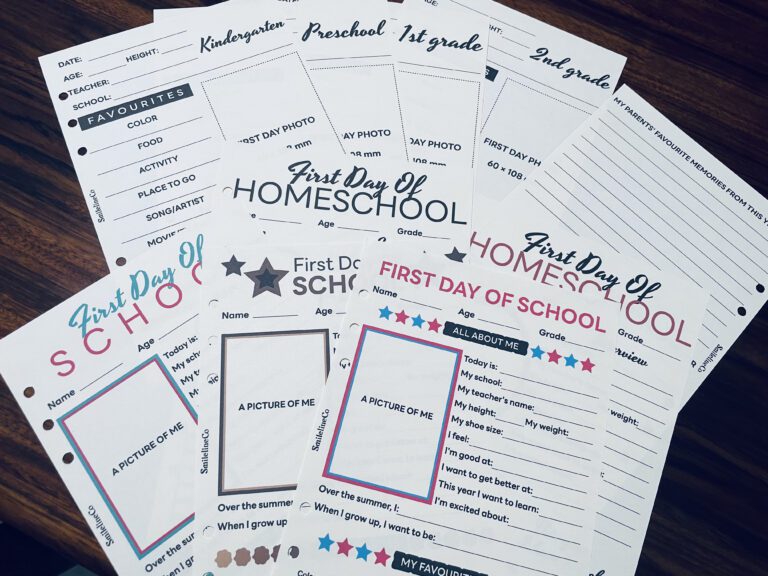 DATE:
HEIGHT:
AGE:
TEACHER:
SCHOOL:
FAVOURITES
COLOR
FOOD
ACTIVITY
PLACE TO GO
SONG/ARTIST
MOVIE
SmilelineCo
Kindergarten
FIRST DAY PHOTO
Preschool
DAY PHOTO
mm
1st grade
DAY PHOTO
108 mm
2nd grade
FIRST DAY PH
60 × 108
MY PARENTS' FAVOURITE MEMORIES FROM THIS Y
First Day Of
HOMESCHOOL
Name
Age
Grade
First Day Of
HOMESCHOOL
Grade
rview
My weight:
First Day Of
SCHOO
Name
Age
Today is:
My school:
My teac
My he
My sh
I feel
I'm
I w
Th
I'm
A PICTURE OF ME
SmilelineCo
Over the summer
When I grow up
First Da
SCHO
Name
Age
A PICTURE OF ME
SmilelineCo
Over the summ
When I grow u
FIRST DAY OF SCHOOL
Name
Age
Grade
ALL ABOUT ME
A PICTURE OF ME
Today is:
My school:
My teacher's name:
My height:
My weight:
My shoe size:
I feel:
I'm good at:
I want to get better at:
This year I want to learn:
I'm excited about:
SmilelineCo
Over the summer, I:
When I grow up, I want to be:
MY FAVOURIT
Colo